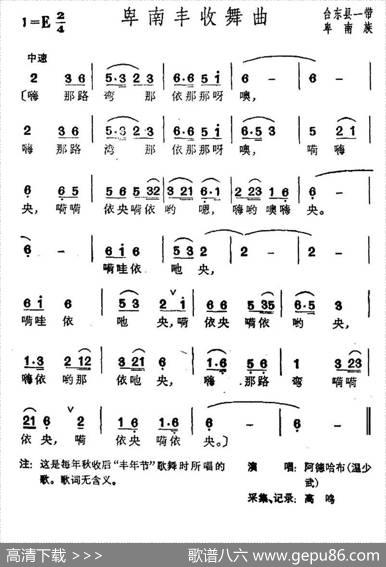 卑南丰收舞曲
1=E 2/4
台东县一带
卑南族
中速
2 3 6 | 5·3 2 3 | 6·6 5 i | 6 - | 6 - |
〔嗨 那路 湾 那 依那那呀 噢,
2 3 6 | 5·3 2 3 | 6·6 5 i | 6·5 3 | 5 2 1 |
嗨 那路 湾 那 依那那呀 噢, 嗬嗨
央, 嗬嗬 依央嗬依 哟 嗯, 嗨哟噢嗨 央。
6 - | 6 i 6 | 5 3 2 | 2 - | 2 - |
嗬哇依 吔 央,
6 i 6 | 5 3 2 i | 6 5 6 | 5 6 3 5 | 6·5 3 |
嗬哇 依 吔 央,嗬 依央 嗬依 哟 央,
1·3 2 1 2 | 3 2 1 6 | 1·6 | 5·6 5 6 | 1 3 2 3 |
嗨依 哟那 依吔央, 嗨 那路 弯 嗬嗬
2 1 6 6 | 5 6 1·6 | 6 - | 5 6 1·6 | 6 - |
依 央, 嗬 依央 依 央。〕
注: 这是每年秋收后“丰年节”歌舞时所唱的
歌。歌词无含义。
演 唱: 阿德哈布(温少
武)
采集、记录: 高 鸣
高清下载 >>>
歌谱八六 www.gepu86.com